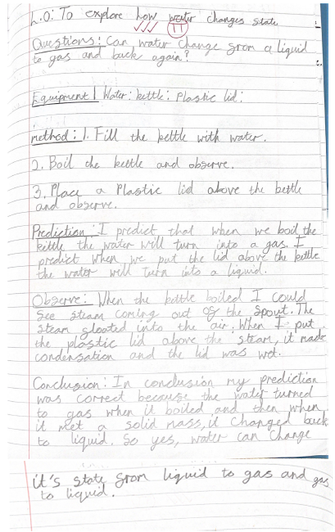 L.O: To explore how water changes state
Questions: Can water change from a liquid
to gas and back again?
Equipment | Water: kettle: Plastic lid:
method: 1. Fill the kettle with water.
2. Boil the kettle and observe.
3. Place a Plastic lid above the bettle
and observe.
Prediction: I predict that when we boil the
kittle the water will turn into a gas. I
predict when we put the lid above the kettle
the water will turn into a liquid.
Observe: When the kettle boiled I could
see steam coming out of the spout. The
steam floated into the air. When I put
the plastic lid above the steam, it made
condensation and the lid was wet.
Conclusion: In conclusion my prediction
was correct because the water turned
to gas when it boiled and then when
it met a solid mass, it changed back
to liquid. So yes, water can change
it's state from liquid to gas and gas
to liquid.